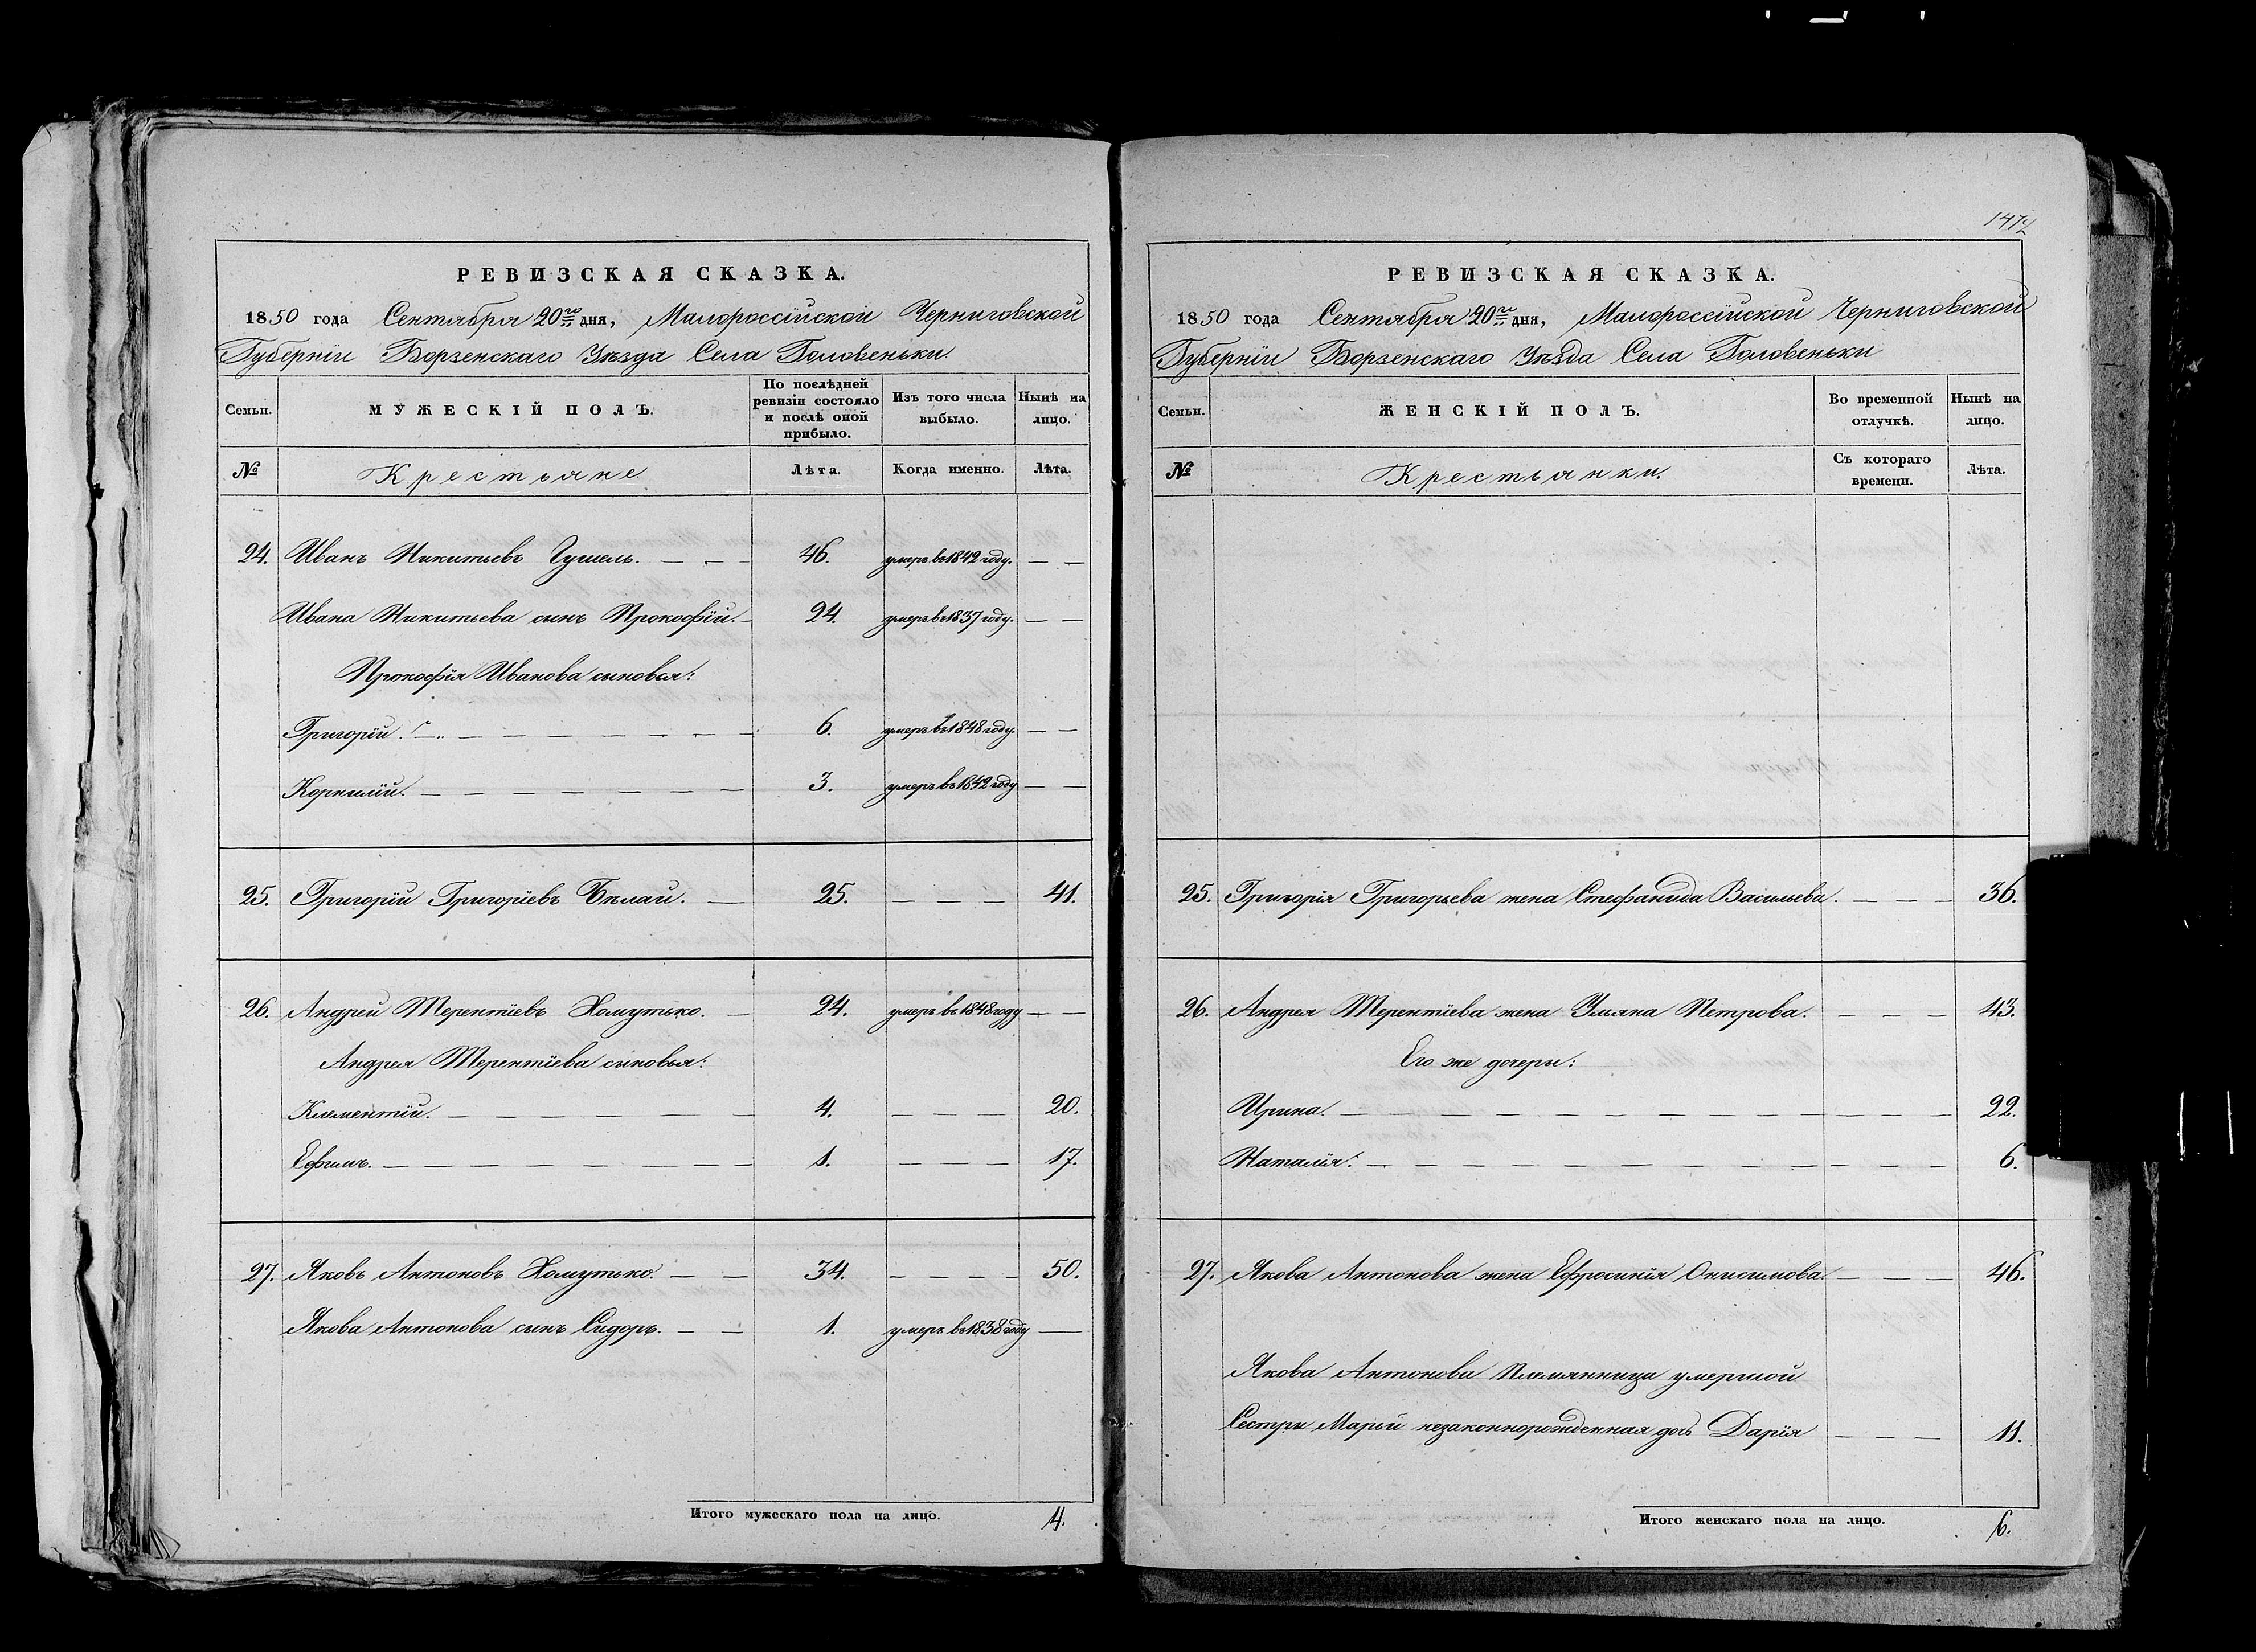 РЕВИЗСКАЯ СКАЗКА.
1850 года Сентября 20го дня, Малороссійской Черниговской
Губерніи Борзенскаго Уѣзда Села Головеньки.
Семьи.
МУЖЕСКІЙ ПОЛЪ.
По послѣдней ревизіи состояло и послѣ оной прибыло.
Изъ того числа выбыло.
Нынѣ на лицо.
№ Крестьяне Лѣта. Когда именно. Лѣта.
24. Иванъ Никитьевъ 46. умеръ въ 1842 году. — —
Ивана Никитьева сынъ Прокофій. — 24. умеръ въ 1837 году. — —
Прокофія Иванова сыновья:
Григорій. — 6. умеръ въ 1848 году. — —
Корнилій. — 3. умеръ въ 1842 году — —
25. Григорій Григоріевъ Бѣлай. — 25. — — — 41.
26. Андрей Терентіевъ Хомутько. — 24. умеръ въ 1848 году — —
Андрея Терентіева синовья:
Климентій. — 4. — — — 20.
Ефимъ. — 1. — — — 17.
27. Яковъ Антоновъ Хомутько. — — 34. — — — — 50.
Якова Антонова сынъ Сидоръ. — — 1. умеръ въ 1838 году —
Итого мужескаго пола на лицо. 4.
РЕВИЗСКАЯ СКАЗКА.
1850 года Сентября 20го дня, Малороссійской Черниговской
Губерніи Борзенскаго Уѣзда Села Головеньки
Семьи.
ЖЕНСКІЙ ПОЛЪ.
Во временной отлучкѣ.
Нынѣ на лицо.
№ Крестьянки. Съ котораго времени. Лѣта.
25. Григорія Григорьева жена Стефанида Васильева. — — — 36.
26. Андрея Терентіева жена Ульяна Петрова. — — — 43.
Его же дочери:
Ирина. — 22.
Наталія. — 6.
27. Якова Антонова жена Ефросинія Онисимова. — — — 46.
Якова Антонова племянница умершой
Сестри Марьи незаконнорожденная дочь Дарія — — — 11.
Итого женскаго пола на лицо. 6.